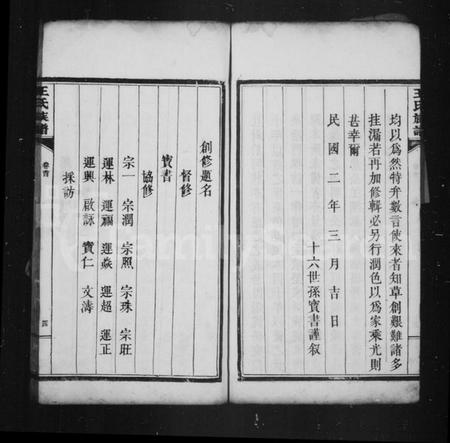 均以爲然特弁數言使來者知草創艱難諸多
挂漏若再加修輯必另行潤色以爲家乘光則
甚幸爾
民國二年三月吉日
十六世孫寶書謹叙
王氏族譜
卷首
四
創修題名
督修
寶書
協修
宗一 宗潤 宗照 宗珠 宗旺
運林 運福 運焱 運超 運正
運興 啟詠 實仁 文濤
採訪